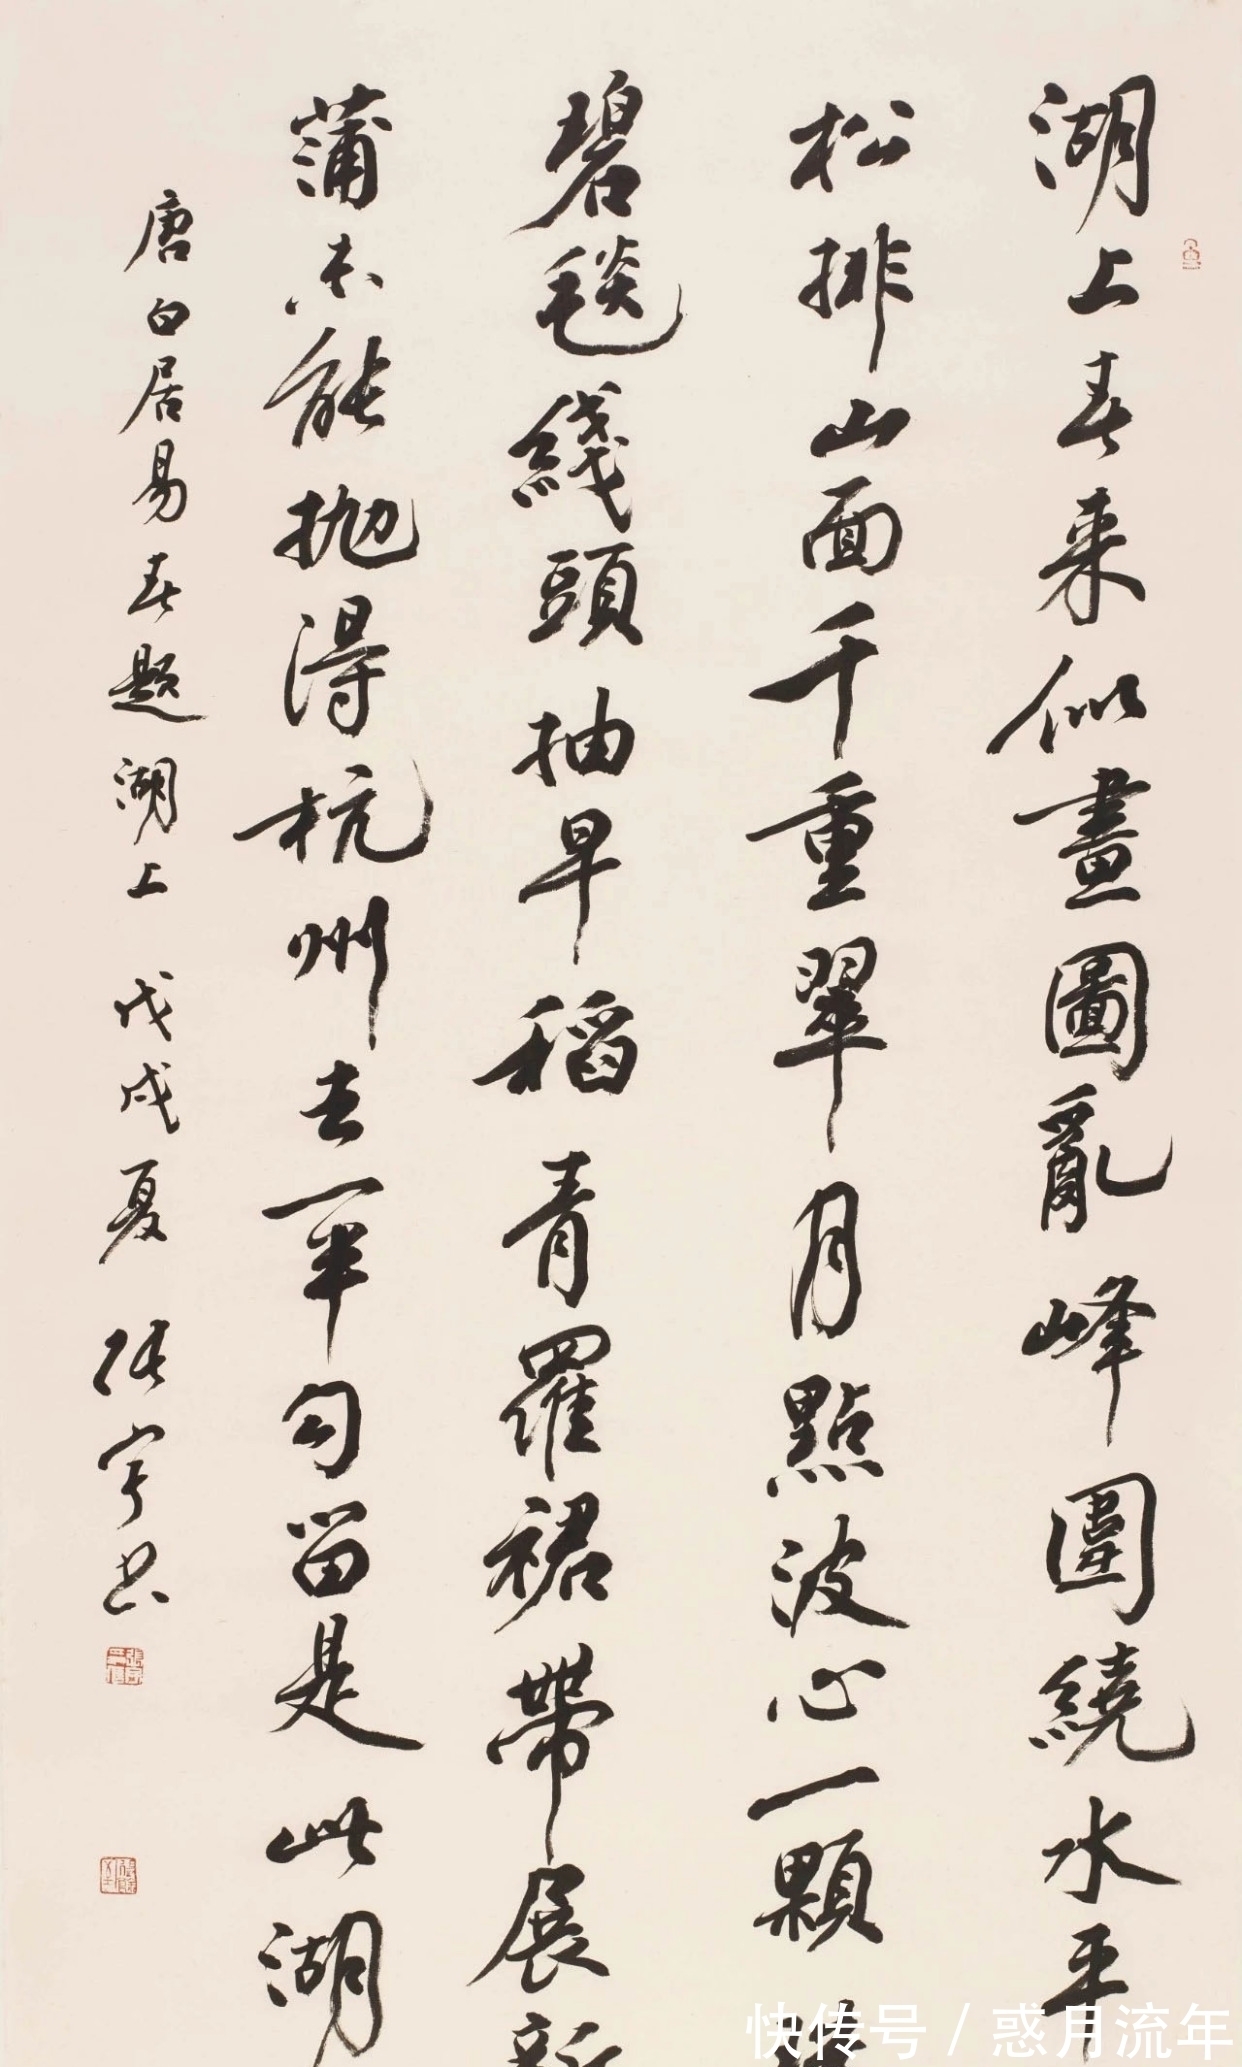 湖上春来似畫圖亂峰圍繞水平
松排山面千重翠月點波心一顆
碧毯綫頭抽早稻青羅裙帶展新
蒲未能抛得杭州去一半勾留是此湖
唐白居易春题湖上 戊戌夏 张宇书
快传号 / 惑月流年